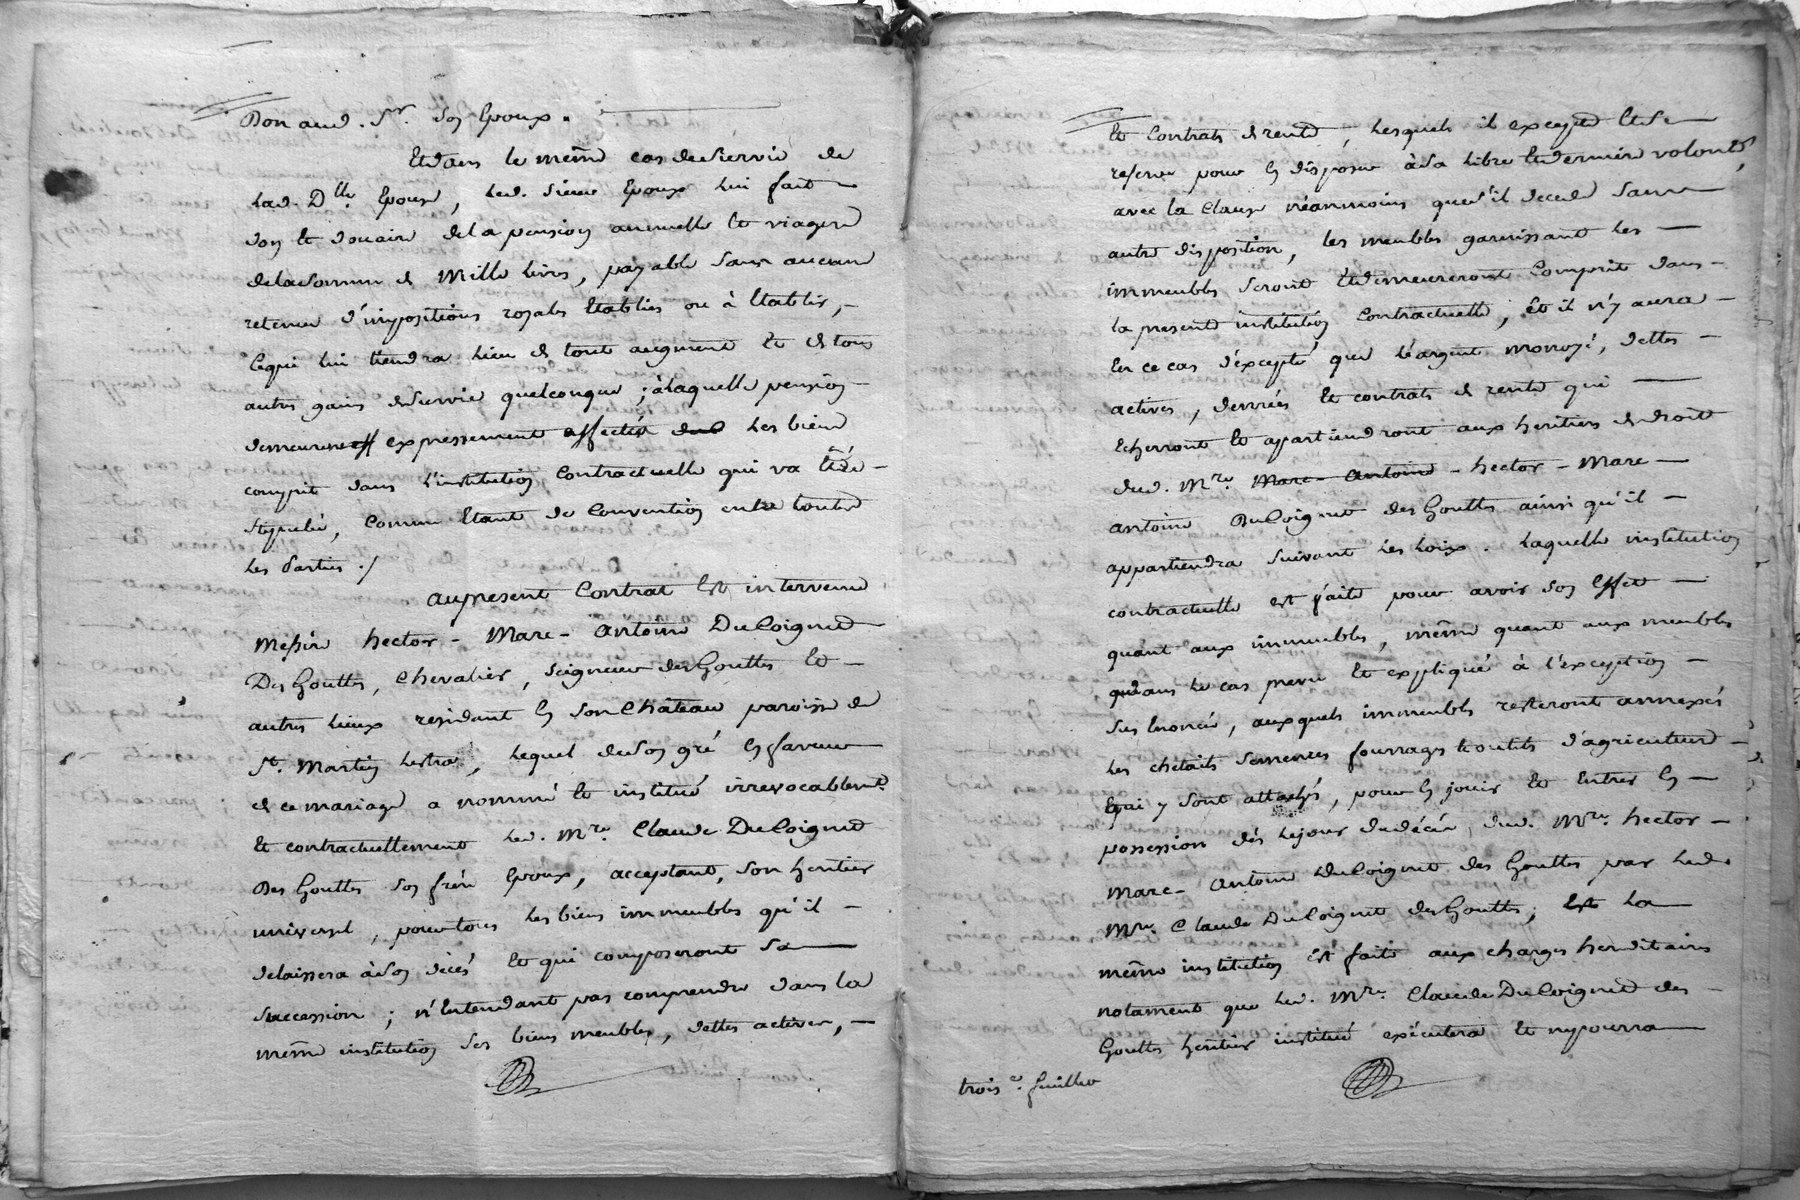 Don aud. Sr. son Epoux.
Et dans le même cas de survie de
lad. Dlle. Epouse, led. sieur Epoux lui fait
don et douaire de la pension annuelle et viagere
de la somme de Mille livres, payable sans aucune
retenue d'impositions royales Etablies ou à Etablir,
ce qui lui tiendra lieu de tout augment et de tous
autres gains de survie quelconque ; à laquelle pension
demeurent expressement affectés les biens
compris dans l'institution contractuelle qui va être
stipulée, comme Etant de Convention entre toutes
les Parties ./
Au present Contrat Est intervenu
Messire hector - Marc - Antoine DuCoignet
Des Gouttes, Chevalier, Seigneur des Gouttes et
autres lieux residant En son Château paroisse de
St. Martin lestra, lequel de son gré En faveur
de ce mariage a nommé et institué irrevocablemt.
et contractuellement led. Mre. Claude DuCoignet
Des Gouttes son frere Epoux, acceptant, son heritier
universel, pour tous les biens immeubles qu'il
delaissera à son décés et qui composeront sa
succession ; n'Entendant pas comprendre dans la
même institution ses biens meubles, dettes actives,
et contrats de rente, lesquels il excepte et se
reserve pour En disposer à sa libre et derniere volonté,
avec la Clause néanmoins que s'il decede sans
autre disposition, les meubles garnissant les
immeubles seront et demeureront compris dans
la presente institution contractuelle, et il n'y aura
En ce cas d'excepté que l'argent monoyé, dettes
actives, denrées et contrats de rente qui
Echerront et apartiendront aux heritiers de droit
dud. Mre. Marc - Antoine - hector - Marc
antoine DuCoignet des Gouttes ainsi qu'il
appartiendra suivant les loix. laquelle institution
contractuelle est faite pour avoir son Effet
quant aux immeubles, même quant aux meubles
que dans le cas prevu et expliqué à l'exception
sus Enoncée, auxquels immeubles resteront annexés
les chetails semences fourrages et outils d'agriculture
qui y sont attachés, pour En jouir et Entrer En
possession dès le jour du décés dud. Mre. hector
Marc - Antoine DuCoignet des Gouttes par led.
Mre. Claude DuCoignet des Gouttes ; Est la
même institution est faite aux charges hereditaires
notament que led. Mre. Claude DuCoignet des
Gouttes heritier institué exécutera et ne pourra
trois e. feuillet